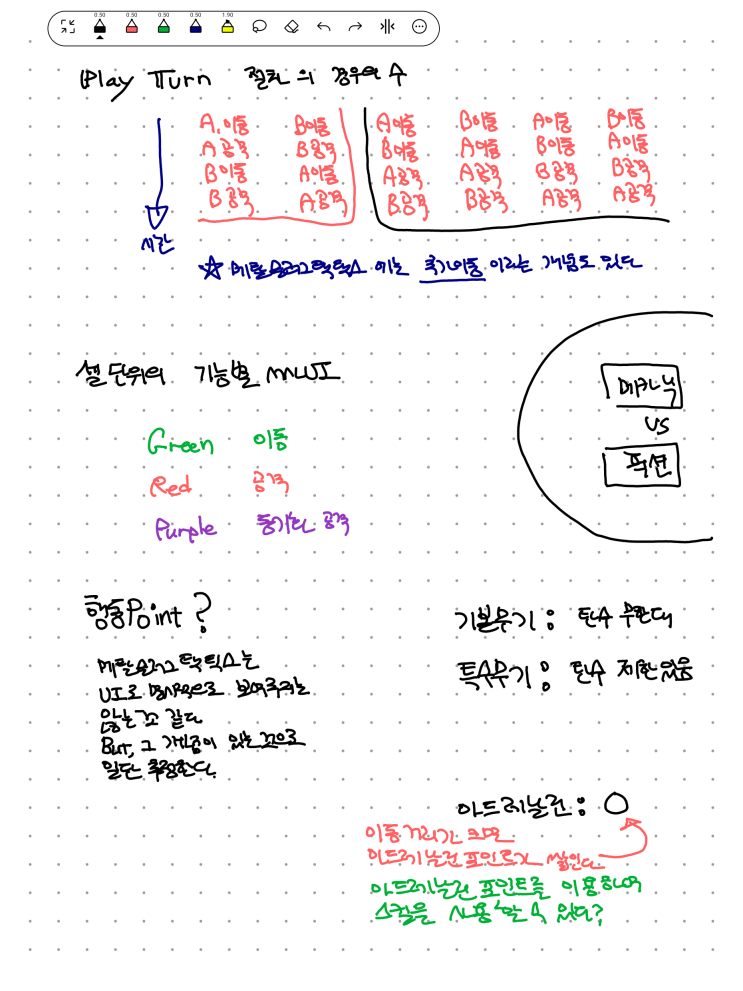 0.50 0.50 0.50 0.50 1.90
Play Turn 절차의 경우의 수
A.이동 B이동 A이동 B이동 A이동 B이동
A공격 B공격 B이동 A이동 B이동 A이동
B이동 A이동 A공격 A공격 B공격 B공격
B공격 A공격 B공격 B공격 A공격 A공격
시간
☆ 메탈슬러그택틱스 에는 추가이동 이라는 개념도 있다
셀 단위의 기능별 UI
Green 이동
Red 공격
Purple 동기화 공격
메카닉
VS
픽션
행동Point ?
메탈슬러그택틱스는
UI로 보여주지는
않는것 같다
But, 그 개념이 있는것으로
일단 추정한다.
기본무기 : 탄수 무한대
특수무기 : 탄수 제한있음
아드레날린 : O
이동거리가 크면
아드레날린 포인트가 쌓인다.
아드레날린 포인트를 이용하여
스킬을 사용할 수 있다?